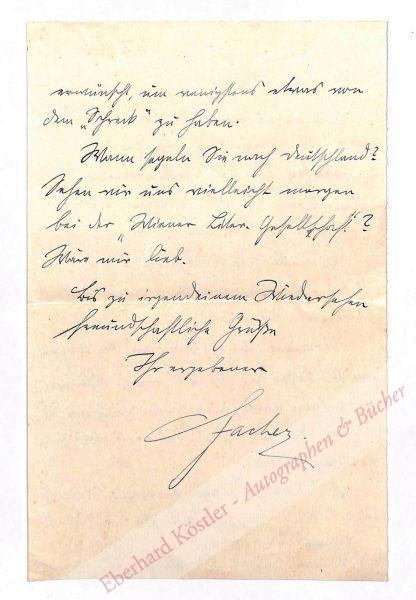 erwünscht, um wenigstens etwas von
dem „Schreck“ zu haben.
Wann segeln Sie nach Deutschland?
Sehen wir uns vielleicht morgen
bei der „Wiener Liter. Gesellschaft“?
Wäre mir lieb.
Bis zu irgendeinem Wiedersehen
freundschaftliche Grüße
Ihr ergebener
Eberhard Köstler - Autographen & Bücher